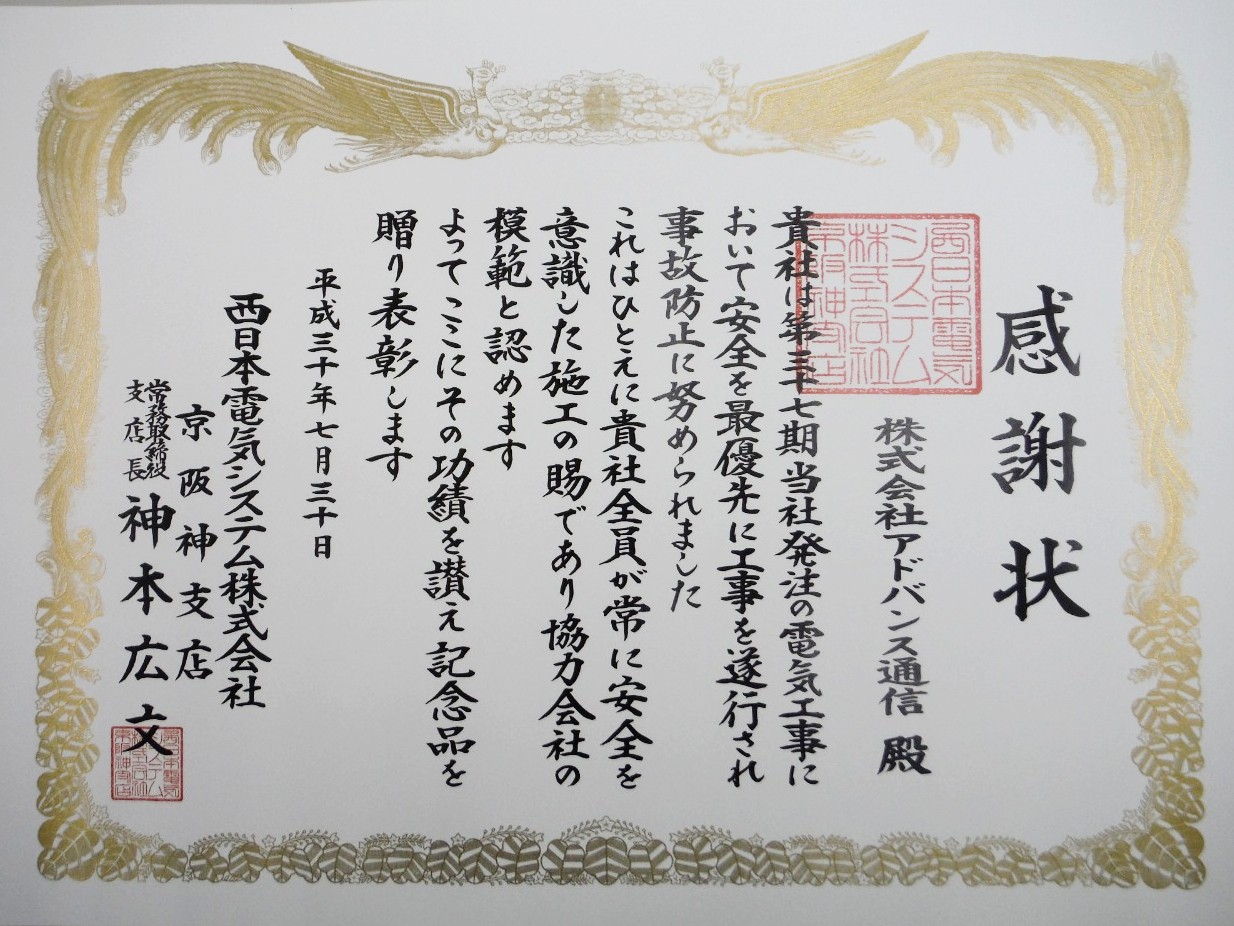 感謝状
株式会社アドバンス通信 殿
貴社は第三十七期当社発注の電気工事に
おいて安全を最優先に工事を遂行され
事故防止に努められました
これはひとえに貴社全員が常に安全を
意識した施工の賜であり協力会社の
模範と認めます
よってここにその功績を讃え記念品を
贈り表彰します
平成三十年七月三十日
西日本電気システム株式会社
京阪神支店
常務取締役
支店長
神本広文
西日本電気
システム
株式会社
京阪神支店
西日本電気
システム
株式会社
京阪神支店